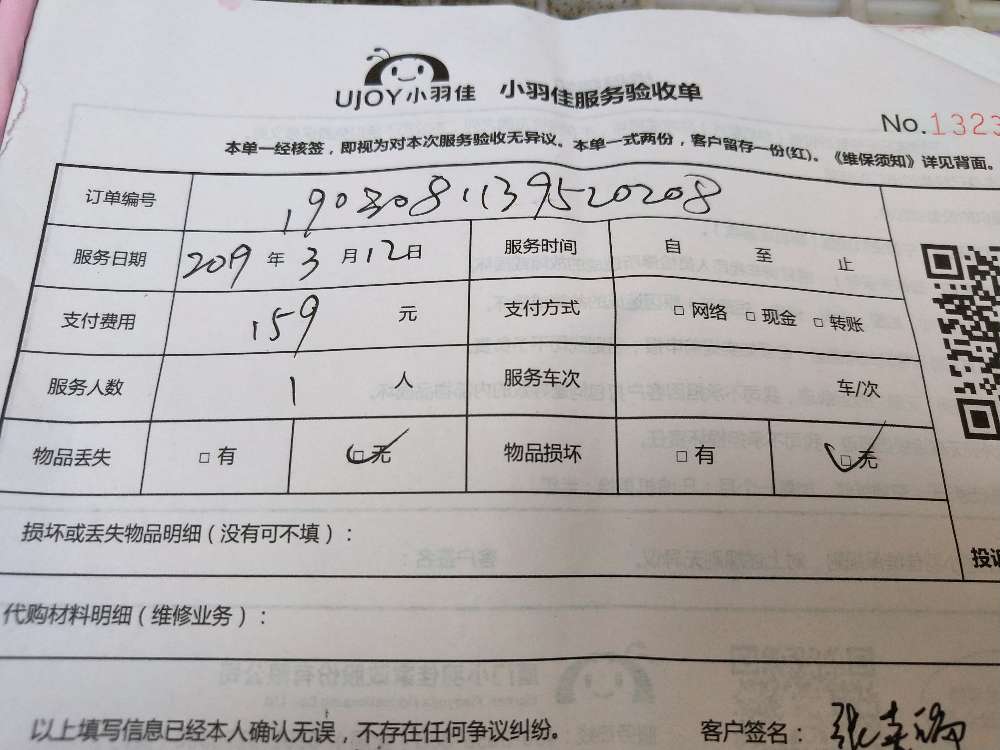 UJOY小羽佳 小羽佳服务验收单
No.1323
本单一经核签，即视为对本次服务验收无异议。本单一式两份，客户留存一份(红)。《维保须知》详见背面。
订单编号 1903081139520208
服务日期 2019 年 3 月 12 日 服务时间 自 至 止
支付费用 159 元 支付方式 □ 网络 □ 现金 □ 转账
服务人数 1 人 服务车次 车/次
物品丢失 □ 有 □ 无 物品损坏 □ 有 □ 无
损坏或丢失物品明细（没有可不填）：
投诉
代购材料明细（维修业务）：
以上填写信息已经本人确认无误，不存在任何争议纠纷。 客户签名：